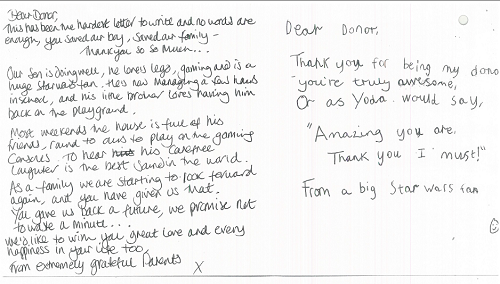 Dear Donor,
This has been the hardest letter to write and no words are
enough, you saved our boy, saved our family -
Thank you so so much...
Our son is doing well, he loves lego, gaming and is a
huge starwars fan. He's now managing a few hours
in school, and his little brother loves having him
back on the playground.
Most weekends the house is full of his
friends, round to ours to play on the gaming
consoles. To hear his carefree
laughter is the best sound in the world.
As a family we are starting to look forward
again, and you have given us that.
You gave us back a future, we promise not
to waste a minute...
We'd like to wish you great love and every
happiness in your life too,
From extremely grateful Parents
X
Dear Donor,
Thank you for being my dono
you're truly awesome,
Or as Yoda would say,
"Amazing you are.
Thank you I must!"
From a big Star wars fan